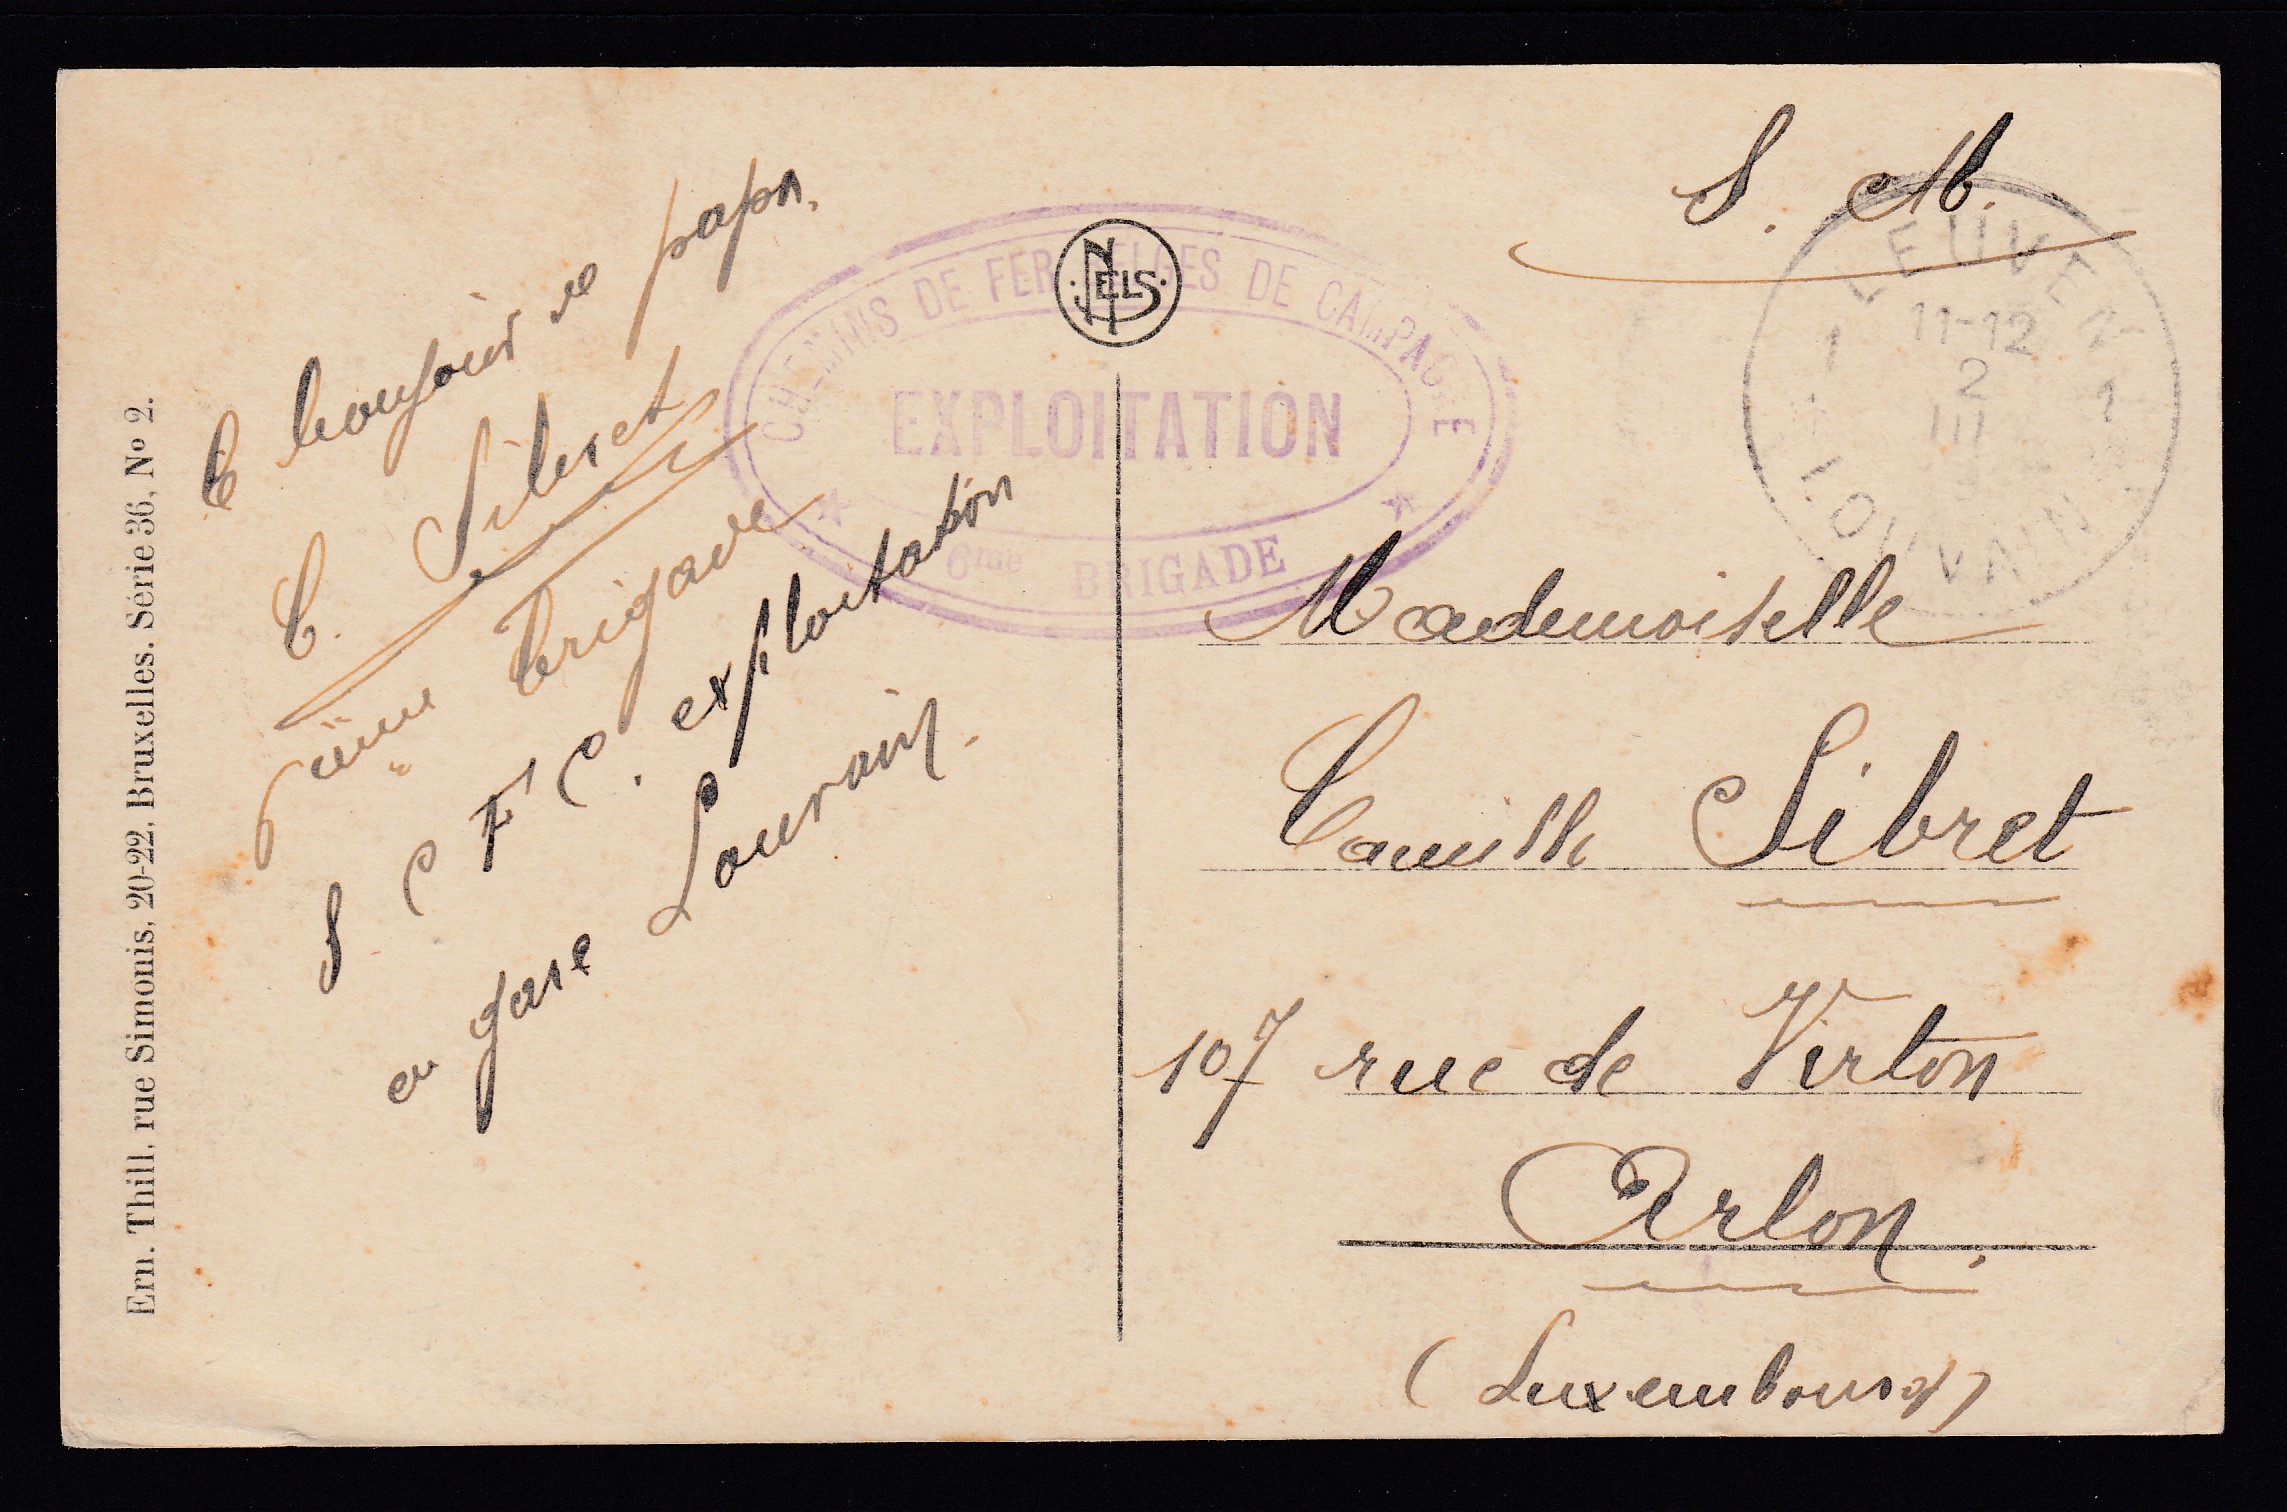 Ern. Thill, rue Simonis, 20-22, Bruxelles. Série 36, No 2.
bonjour de papa.
C. Sibret
6ième brigade
S C F C. exploitation
en gare Louvain.
NELS
CHEMINS DE FER BELGES DE CAMPAGNE
EXPLOITATION
6me BRIGADE
S. M.
LEUVEN
11-12
1 2 1
III
LOUVAIN
Mademoiselle
Camille Sibret
107 rue de Virton
Arlon.
(Luxembourg)